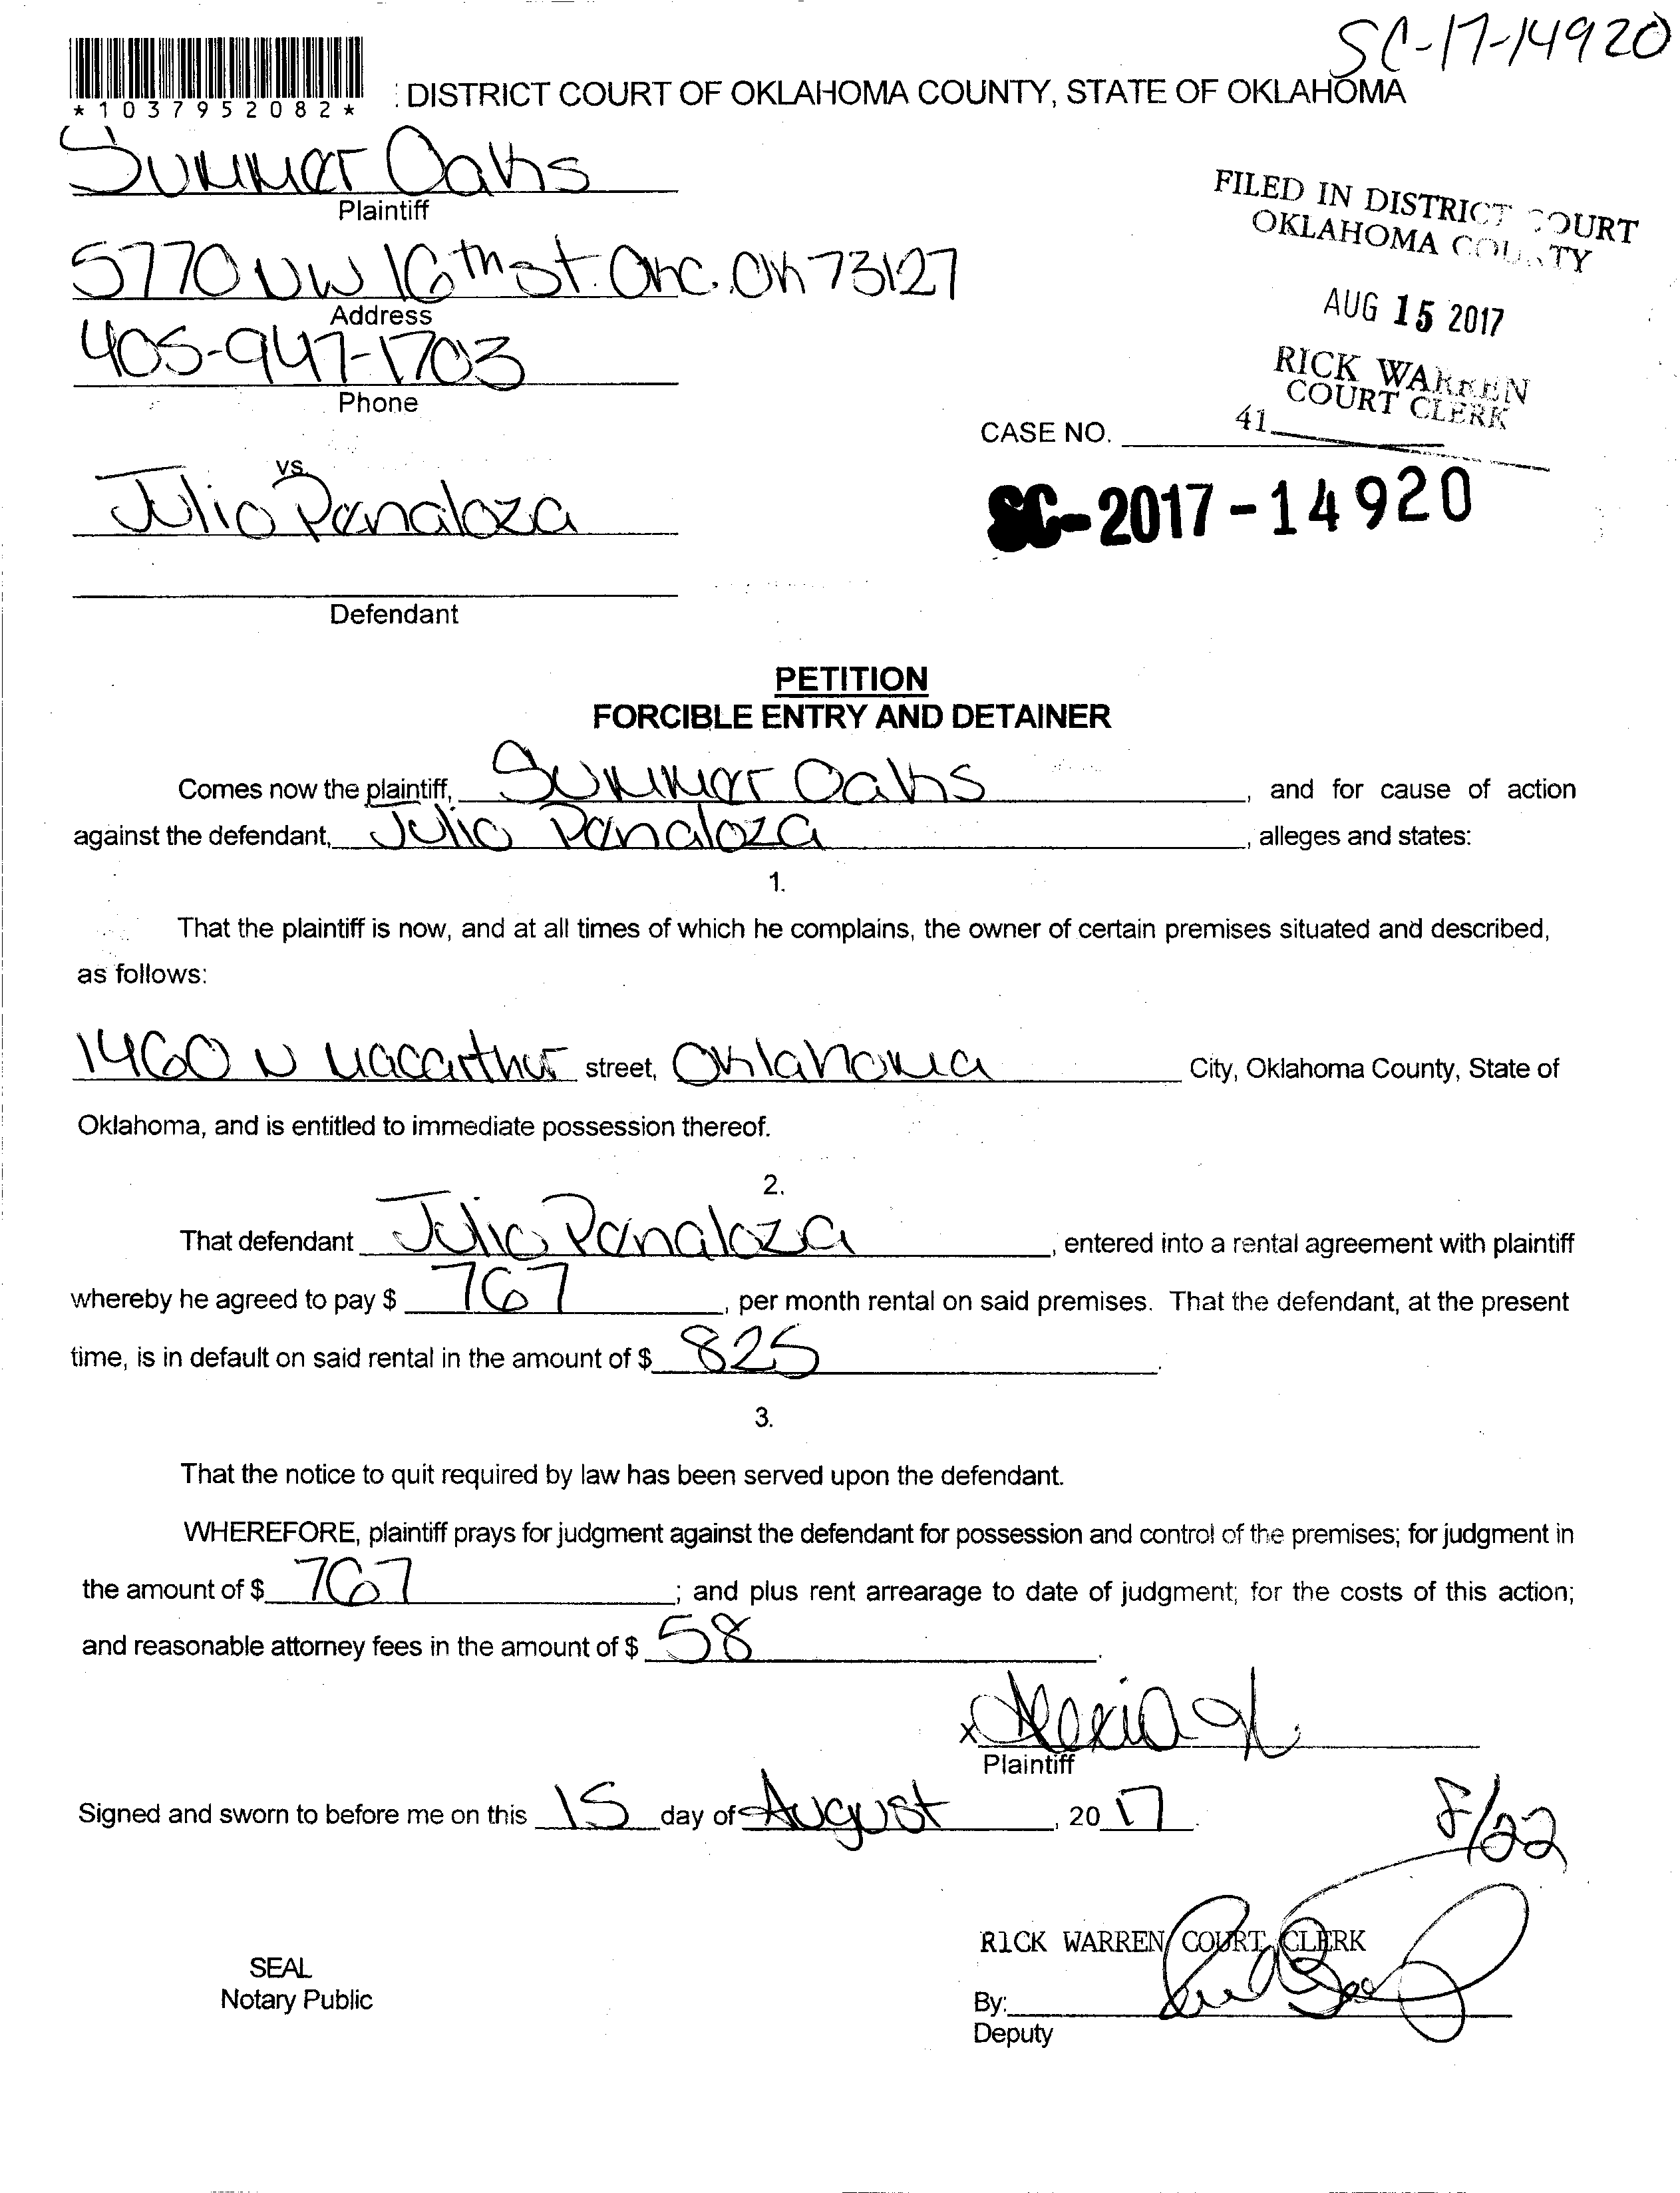 SC-17-14920
*1037952082*
: DISTRICT COURT OF OKLAHOMA COUNTY, STATE OF OKLAHOMA
Summer Oaks
Plaintiff
FILED IN DISTRICT COURT
OKLAHOMA COUNTY
5770 NW 16th st. OKC. OK 73127
Address
AUG 15 2017
405-947-1703
Phone
RICK WARREN
COURT CLERK
41
CASE NO.
vs.
Julio Penaloza
SC-2017-14920
Defendant
PETITION
FORCIBLE ENTRY AND DETAINER
Comes now the plaintiff, Summer Oaks, and for cause of action
against the defendant, Julio Penaloza, alleges and states:
1.
That the plaintiff is now, and at all times of which he complains, the owner of certain premises situated and described,
as follows:
1460 N Macarthur street, Oklahoma City, Oklahoma County, State of
Oklahoma, and is entitled to immediate possession thereof.
2.
That defendant Julio Penaloza, entered into a rental agreement with plaintiff
whereby he agreed to pay $ 767, per month rental on said premises. That the defendant, at the present
time, is in default on said rental in the amount of $ 825.
3.
That the notice to quit required by law has been served upon the defendant.
WHEREFORE, plaintiff prays for judgment against the defendant for possession and control of the premises; for judgment in
the amount of $ 767; and plus rent arrearage to date of judgment; for the costs of this action;
and reasonable attorney fees in the amount of $ 58.
x
Plaintiff
Signed and sworn to before me on this 15 day of August, 20 17.
8/22
RICK WARREN COURT CLERK
SEAL
Notary Public
By:
Deputy